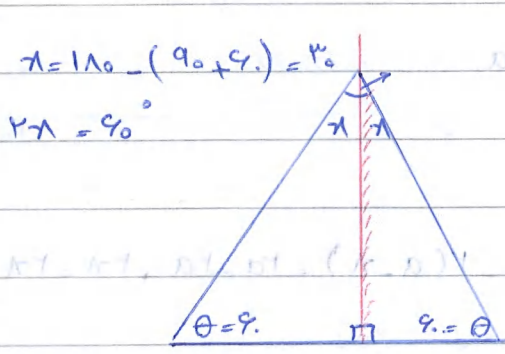 x = ۱۸۰ - (۹۰ + ۶۰) = ۳۰
۲x = ۶۰°
x x
θ = ۶۰ ۶۰ = θ